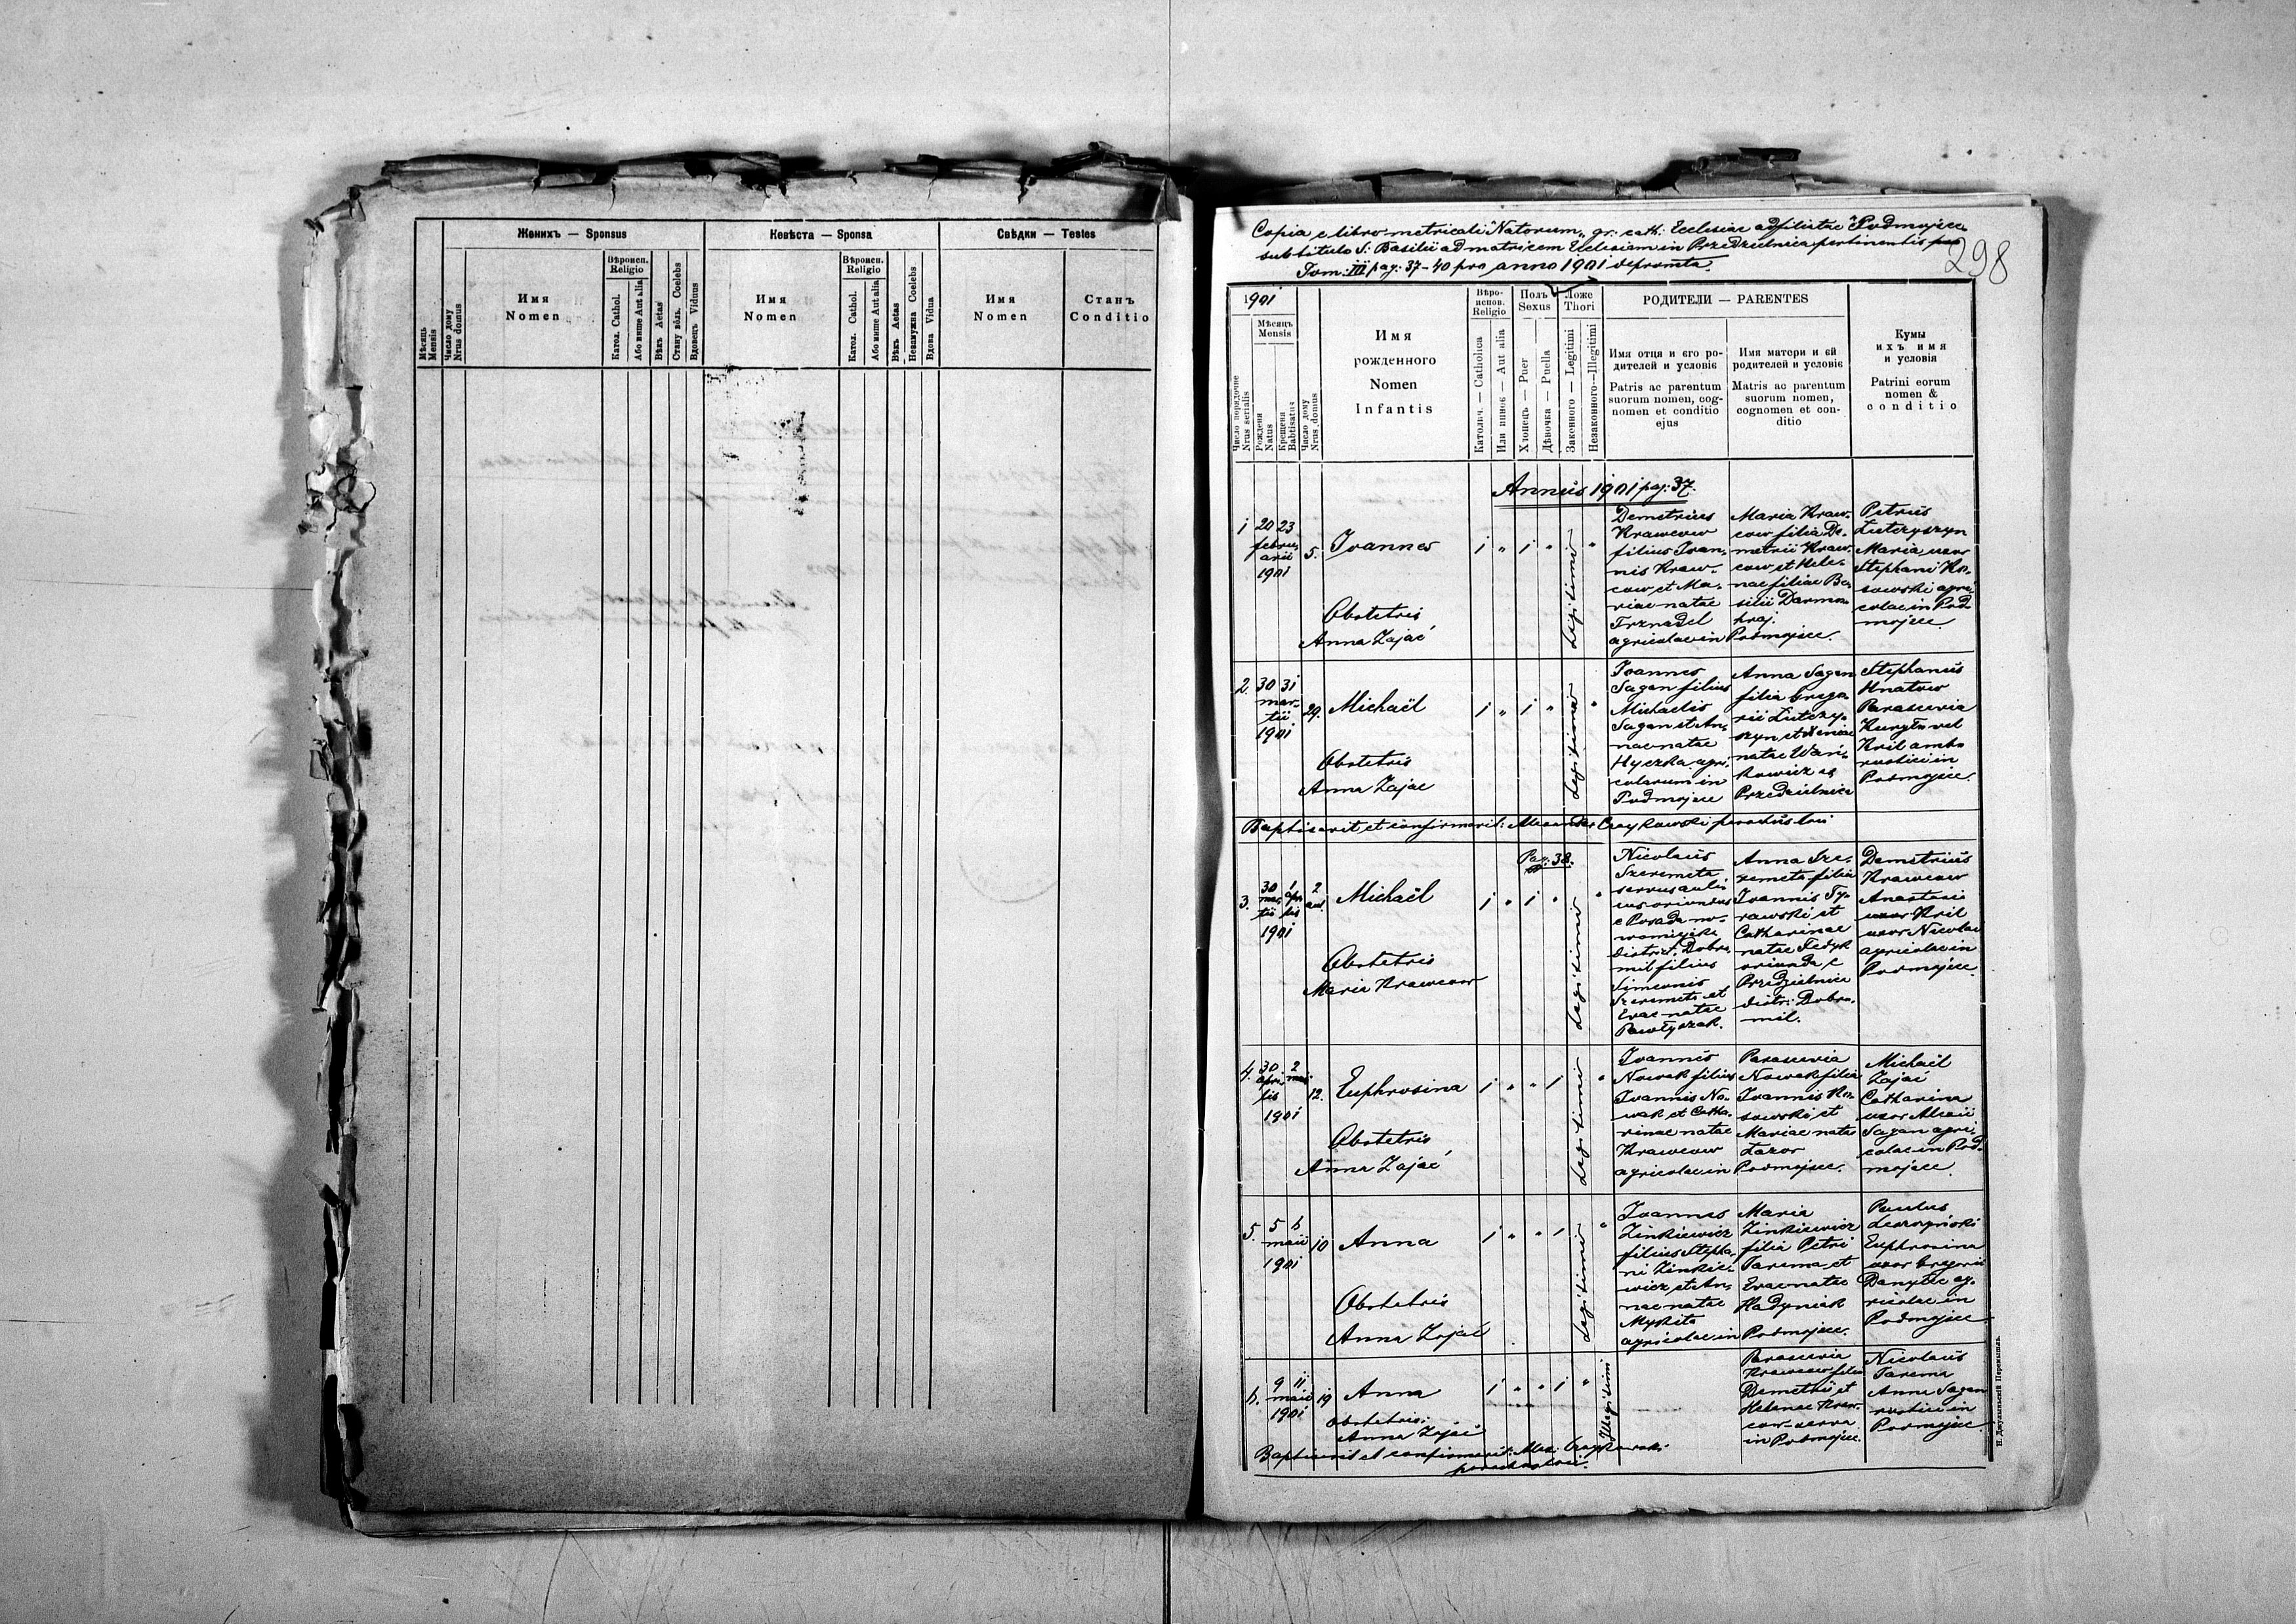 Женихъ — Sponsus
Невѣста — Sponsa
Свѣдки — Testes
Мѣсяць Mensis
Число дому Nrus domus
Имя
Nomen
Вѣроисп.
Religio
Катол. Cathol.
Або инше Aut alia
Вѣкъ Aetas
Стану вôль. Coelebs
Вдовець Viduus
Имя
Nomen
Вѣроисп.
Religio
Катол. Cathol.
Або инше Aut alia
Вѣкъ Aetas
Незамужна Coelebs
Вдова Vidua
Имя
Nomen
Станъ
Conditio
Copia e libro metricali "Natorum" gr. cath. Ecclesiae adfiliatae "Podmojsce
sub titulo S: Basilii ad matricem Ecclesiam in Przedzielnica pertinentis
Tom: III pag: 37-40 pro anno 1901 depromta.
298
1901
Мѣсяць
Mensis
Число порядочне
Nrus serialis
Рождення
Natus
Крещеня
Babtisatus
Число дому
Nrus domus
Имя
рожденного
Nomen
Infantis
Вѣро-
испов.
Religio
Католич. — Catholica
Или инное — Aut alia
Полъ
Sexus
Хлопець — Puer
Дѣвочка — Puella
Ложе
Thori
Законного — Legitimi
Незаконного — Illegitimi
РОДИТЕЛИ — PARENTES
Имя отця и єго ро-
дителей и условіє
Patris ac parentum
suorum nomen, cog-
nomen et conditio
ejus
Имя матери и єй
родителей и условіє
Matris ac parentum
suorum nomen,
cognomen et con-
ditio
Кумы
ихъ имя
и условія
Patrini eorum
nomen &
conditio
Annus 1901 pag: 37.
1 20 23
febru-
arii
1901
5.
Ioannes
1 " 1 " "
Legitimi
Obstetris
Anna Zajac
Demetrius
Krawcow
filius Ioan-
nis Kraw-
cow et Ma-
riae natae
Trznadel
agricolae in Podmojsce.
Maria Kraw-
cow filia De-
metrii Kraw-
cow et Hele-
nae filiae Ba-
silii Darmo-
hraj.
Petrus
Lutczyszyn
Maria uxor
Stephani Ko-
sowski agri-
colae in Pod-
mojsce.
2. 30 31
mar-
tii
1901
29.
Michaël
1 " 1 " "
Legitimi
Obstetris
Anna Zajac
Ioannes
Sagan filius
Michaelis
Sagan et An-
nae natae
Hyczka agri-
colarum in
Podmojsce
Anna Sagan
filia Grego-
rii Lutczy-
szyn et Xeniae
natae Wań-
kowicz es
Przedzielnica
Stephanus
Hnatow
Parascevia
uxor
Kril ambo
rustici in
Podmojsce.
Baptisavit et confirmavit: Alexander Czaykowski parochus loci
Pag: 38.
3. 30 1
mar- apri-
tii lis
1901
2
aul.
Michaël
1 " 1 " "
Legitimi
Obstetris
Maria Krawcow
Nicolaus
Szeremeta
servus auli-
cus oriundus
e Posada no-
womiejska
district. Dobro-
mil filius
Simeonis
Szeremeta et
Evae natae
Pawłyszak.
Anna Sze-
remeta filia
Ioannis Ty-
rawski et
Catharinae
natae Fedyk
oriunda e
Przedzielnica
distr: Dobro-
mil.
Demetrius
Krawcow
Anastasia
uxor Kril
uxor Nicolai
agricolae in
Podmojsce.
4. 30 2
apri- maii
lis
1901
12.
Euphrosina
1 " " 1 "
Legitimi
Obstetris
Anna Zajac
Ioannes
Nowak filius
Ioannis No-
wak et Catha-
rinae natae
Krawcow
agricolae in Podmojsce.
Parascevia
Nowak filia
Ioannis Ko-
sowski et
Mariae natae
Lazor
Michaël
Zajac
Catharina
uxor Alexii
Sagan agri-
colae in Pod-
mojsce.
5. 5 6
maii
1901
10
Anna
1 " " 1 "
Legitimi
Obstetris
Anna Zajac
Ioannes
Zinkiewicz
filius Stepha-
ni Zinkie-
wicz et An-
nae natae
Mykita
agricolae in Podmojsce.
Maria
Zinkiewicz
filia Petri
Jarema et
Evae natae
Hadyniak
Paulus
Leszczyński
Euphrosina
uxor Gregorii
Danylec ag-
ricolae in
Podmojsce
6. 9 11
maii
1901
19
Anna
1 " " 1 "
Illegitimi
Obstetris:
Anna Zajac
Parascevia
Krawcow filia
Demetrii et
Helenae Kraw-
cow serva
in Podmojsce.
Nicolaus
Jarema
Anna Sagan
rustici in
Podmojsce.
Baptisavit et confirmavit: Alex: Czaykowski
parochus loci.
Н. Джулыньскій Перемышль.